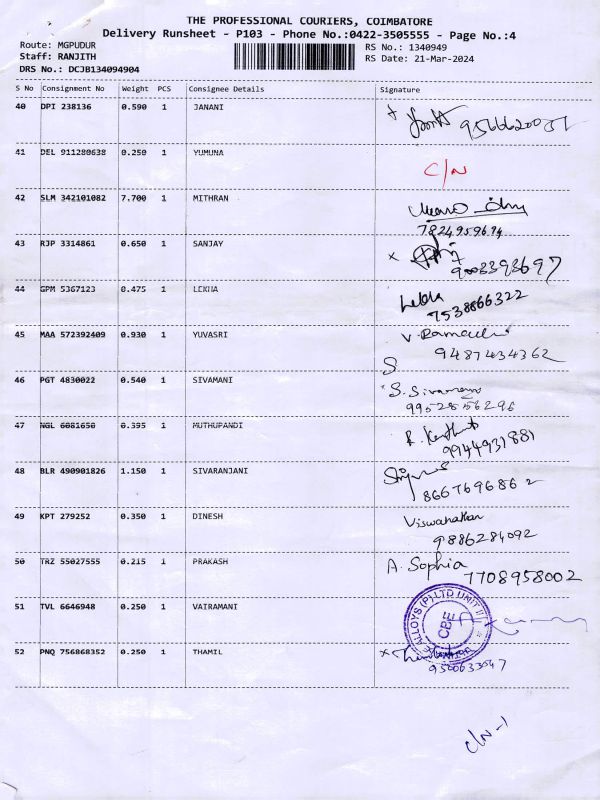 THE PROFESSIONAL COURIERS, COIMBATORE
Delivery Runsheet - P103 - Phone No.:0422-3505555 - Page No.:4
Route: MGPUDUR
RS No.: 1340949
Staff: RANJITH
RS Date: 21-Mar-2024
DRS No.: DCJB134094904
S No Consignment No Weight PCS Consignee Details Signature
40 DPI 238136 0.590 1 JANANI
41 DEL 911280638 0.250 1 YUMUNA
C/N
42 SLM 342101082 7.700 1 MITHRAN
7824959694
43 RJP 3314861 0.650 1 SANJAY
x
9003393697
44 GPM 5367123 0.475 1 LEKHA
Lekha
7538866322
45 MAA 572392409 0.930 1 YUVASRI
9487434362
S
46 PGT 4830022 0.540 1 SIVAMANI
S. Sivamani
9952856296
47 NGL 6081650 0.395 1 MUTHUPANDI
9944931881
48 BLR 490901826 1.150 1 SIVARANJANI
8667696862
49 KPT 279252 0.350 1 DINESH
Viswanathan
9886284092
50 TRZ 55027555 0.215 1 PRAKASH
A. Sophia
7708958002
51 TVL 6646948 0.250 1 VAIRAMANI
ALLOYS (P) LTD UNIT II
CBE
52 PNQ 756868352 0.250 1 THAMIL
x
9500633047
C/N-1